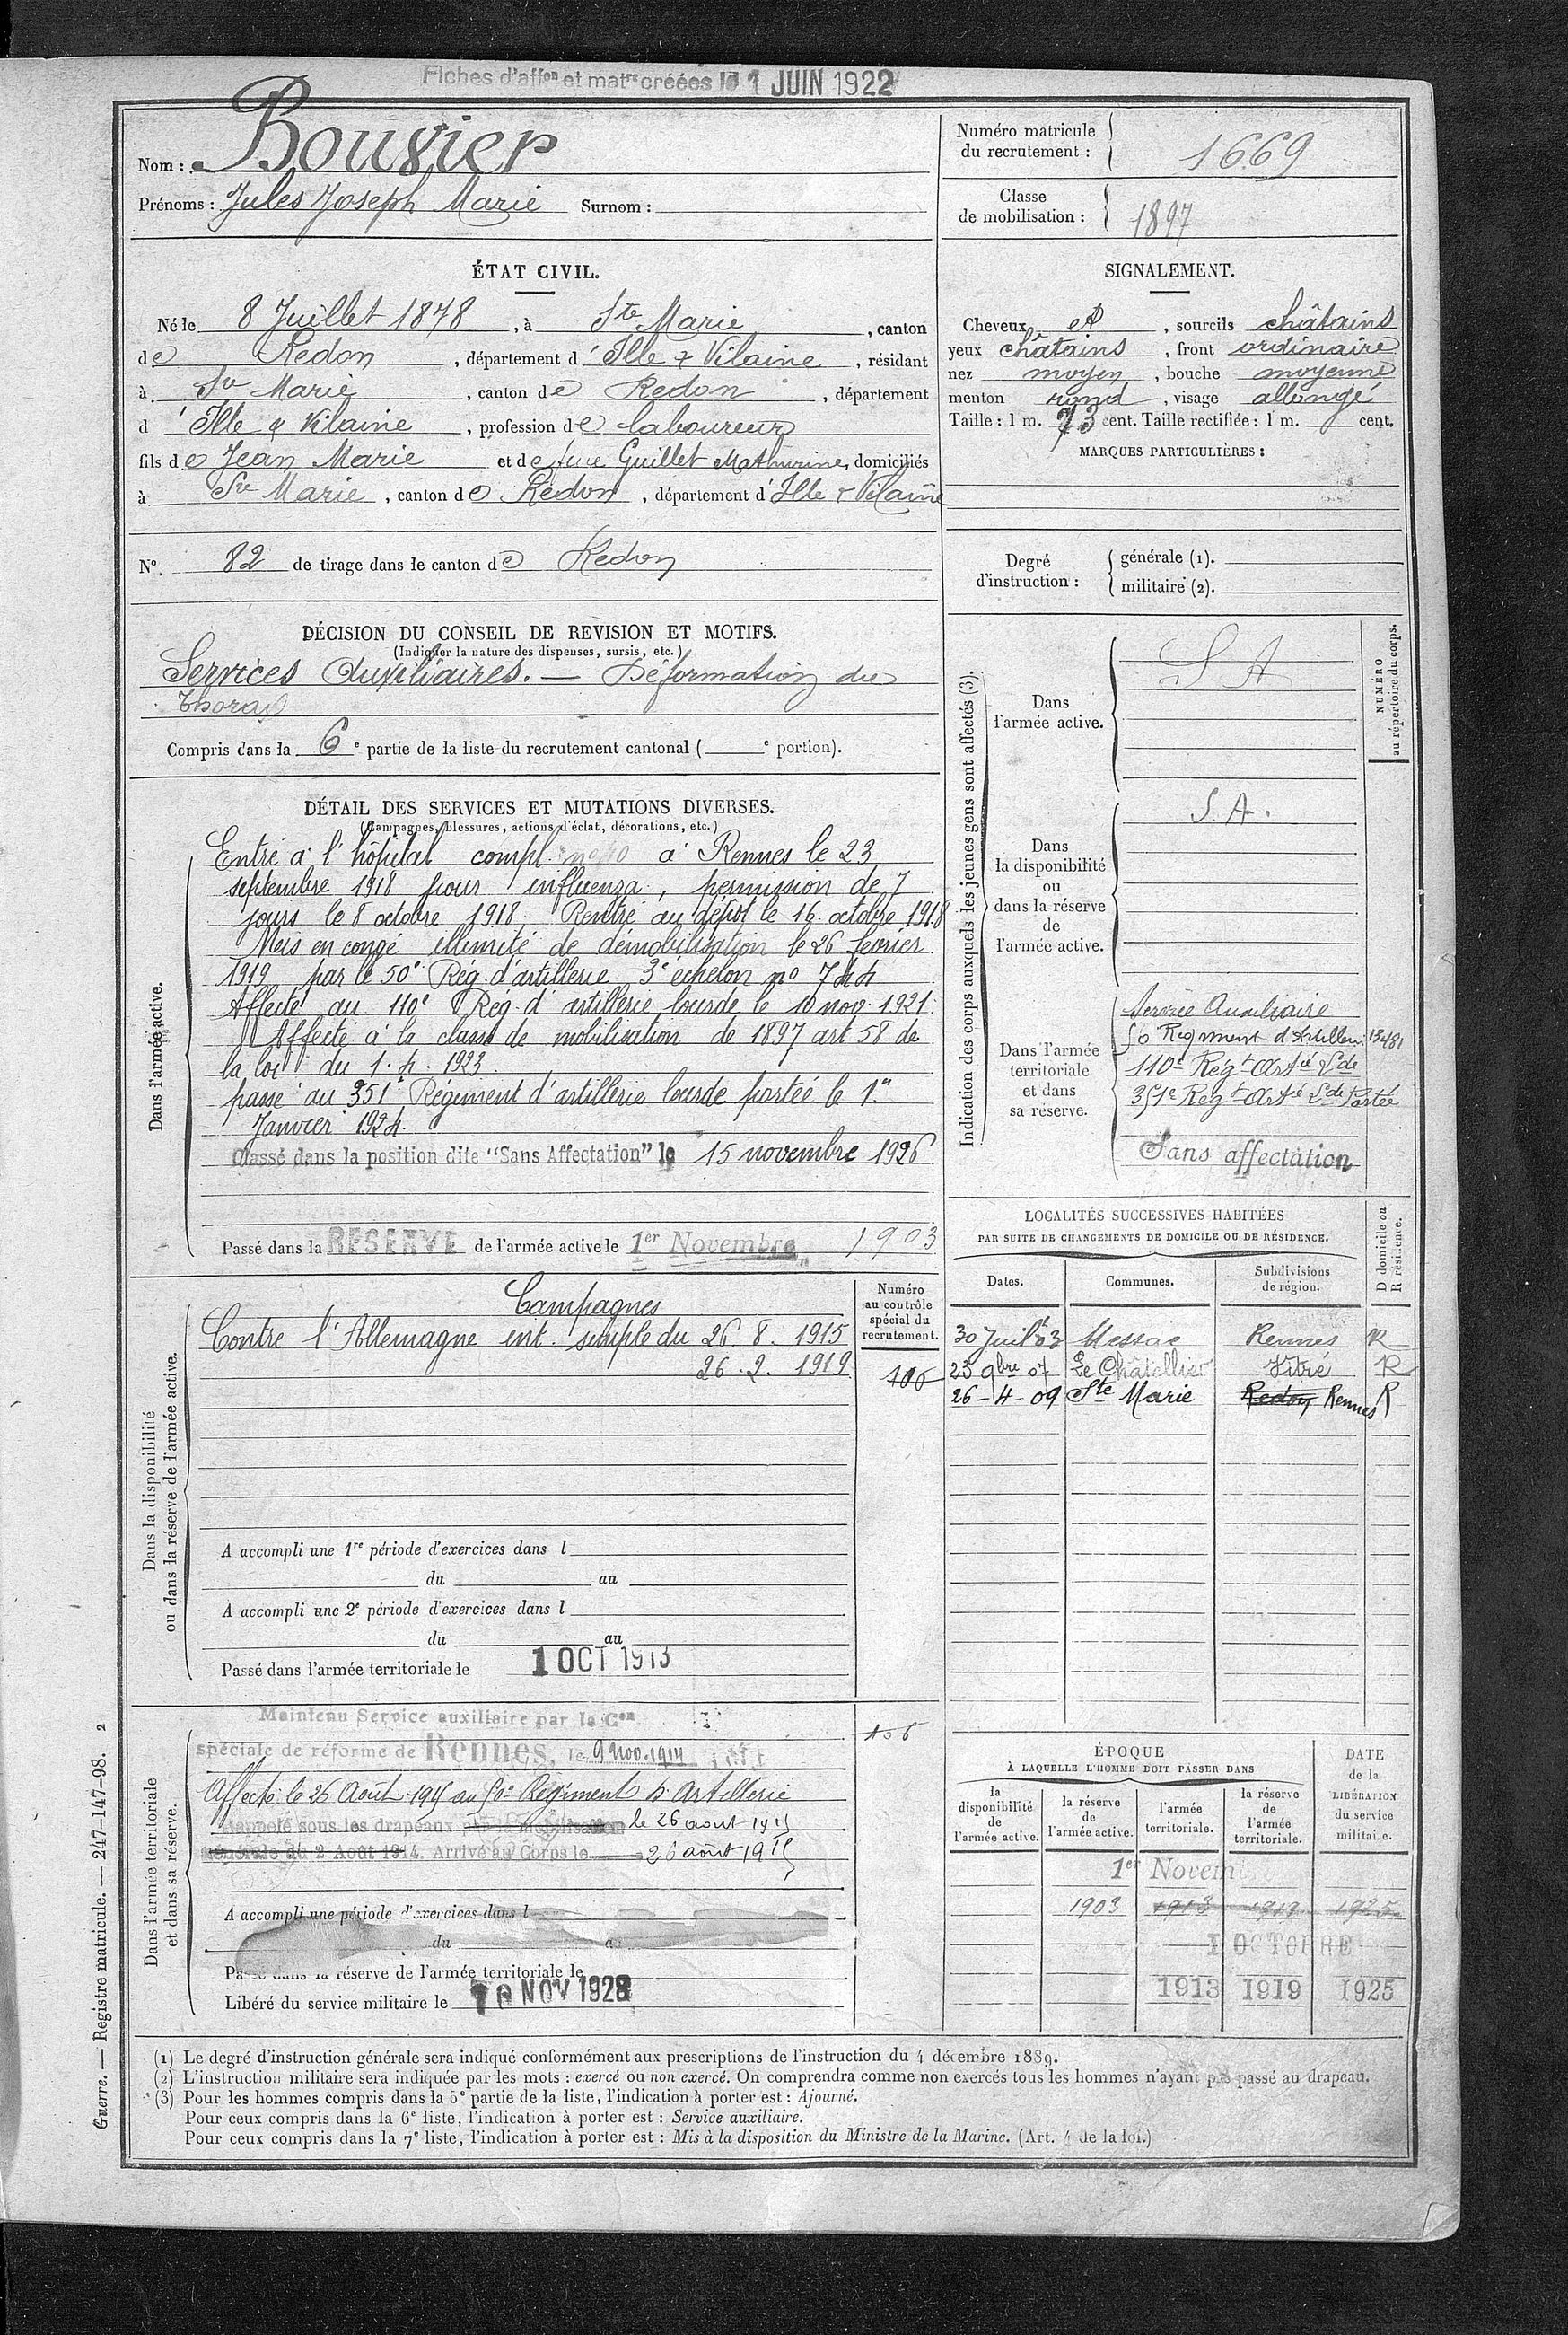 Fiches d'affon et matre créées le 1 JUIN 1922
Nom : Bouvier
Prénoms : Jules Joseph Marie Surnom :
Numéro matricule du recrutement : 1669
Classe de mobilisation : 1897
ÉTAT CIVIL.
Né le 8 Juillet 1878, à Ste Marie, canton
de Redon, département d'Ille & Vilaine, résidant
à Ste Marie, canton de Redon, département
d'Ille & Vilaine, profession de laboureur
fils de Jean Marie et de feue Guillet Mathurine, domiciliés
à Ste Marie, canton de Redon, département d'Ille & Vilaine
N° 82 de tirage dans le canton de Redon
SIGNALEMENT.
Cheveux et, sourcils châtains
yeux châtains, front ordinaire
nez moyen, bouche moyenne
menton rond, visage allongé
Taille : 1 m. 73 cent. Taille rectifiée : 1 m. cent.
MARQUES PARTICULIÈRES :
Degré d'instruction : générale (1).
militaire (2).
DÉCISION DU CONSEIL DE REVISION ET MOTIFS.
(Indiquer la nature des dispenses, sursis, etc.)
Services Auxiliaires. — Déformation du
Thorax
Compris dans la 6e partie de la liste du recrutement cantonal ( e portion).
DÉTAIL DES SERVICES ET MUTATIONS DIVERSES.
(Campagnes, blessures, actions d'éclat, décorations, etc.)
Dans l'armée active.
Entré à l'hôpital compl. à Rennes le 23
septembre 1918 pour influenza, permission de 7
jours le 8 octobre 1918. Rentré au dépôt le 16 octobre 1918
Mis en congé illimité de démobilisation le 26 février
1919 par le 50e Rég. d'artillerie 3e échelon no 744
Affecté au 110e Rég. d'artillerie lourde le 10 nov. 1921.
Affecté à la classe de mobilisation de 1897 art 58 de
la loi du 1.4.1923.
passé au 351e Régiment d'artillerie lourde portée le 1er
Janvier 1924.
Classé dans la position dite "Sans Affectation" le 15 novembre 1926
Passé dans la RESERVE de l'armée active le 1er Novembre 1903
Indication des corps auxquels les jeunes gens sont affectés (3).
NUMÉRO au répertoire du corps.
Dans l'armée active.
S A
Dans la disponibilité ou dans la réserve de l'armée active.
S. A.
Dans l'armée territoriale et dans sa réserve.
Service Auxiliaire
50 Regiment d'Artillerie 13481
110e Régt Artie Lde
351e Regt Artie Lde Portée
Sans affectation
Dans la disponibilité ou dans la réserve de l'armée active.
Campagnes
Contre l'Allemagne int. simple du 26.8.1915
26.2.1919
Numéro au contrôle spécial du recrutement.
106
A accompli une 1re période d'exercices dans l
du au
A accompli une 2e période d'exercices dans l
du au
Passé dans l'armée territoriale le 1 OCT 1913
LOCALITÉS SUCCESSIVES HABITÉES
PAR SUITE DE CHANGEMENTS DE DOMICILE OU DE RÉSIDENCE.
Dates. Communes. Subdivisions de région. D domicile ou R résidence.
30 Juilt 03 Messac Rennes R
23 9bre 07 Le Châtellier Vitré R
26-4-09 Ste Marie Redon Rennes R
Dans l'armée territoriale et dans sa réserve.
Maintenu Service auxiliaire par la Con
spéciale de réforme de Rennes, le 9 nov. 1914
Affecté le 26 Août 1915 au 50e Régiment d'Artillerie
Rappelé sous les drapeaux le 26 aout 1915
générale du 2 Août 1914. Arrivé au Corps le 26 août 1915
A accompli une période d'exercices dans l
du
Passé dans la réserve de l'armée territoriale le
Libéré du service militaire le 10 NOV 1928
ÉPOQUE
À LAQUELLE L'HOMME DOIT PASSER DANS
la disponibilité de l'armée active.
la réserve de l'armée active.
l'armée territoriale.
la réserve de l'armée territoriale.
DATE de la LIBÉRATION du service militaire.
1er Novem
1903 1913 1919 1925
1 OCTOBRE
1913 1919 1925
(1) Le degré d'instruction générale sera indiqué conformément aux prescriptions de l'instruction du 4 décembre 1889.
(2) L'instruction militaire sera indiquée par les mots : exercé ou non exercé. On comprendra comme non exercés tous les hommes n'ayant pas passé au drapeau.
(3) Pour les hommes compris dans la 5e partie de la liste, l'indication à porter est : Ajourné.
Pour ceux compris dans la 6e liste, l'indication à porter est : Service auxiliaire.
Pour ceux compris dans la 7e liste, l'indication à porter est : Mis à la disposition du Ministre de la Marine. (Art. 4 de la loi.)
Guerre. — Registre matricule. — 247-147-98. 2